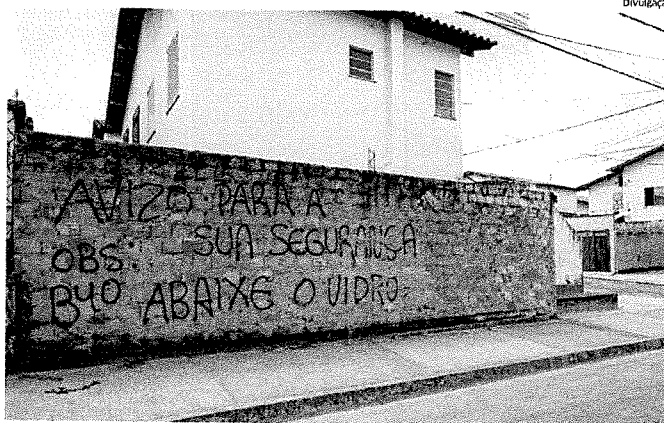 Divulgaçã
AVIZO: PARA A
OBS: SUA SEGURANSA
B40 ABAIXE O VIDRO